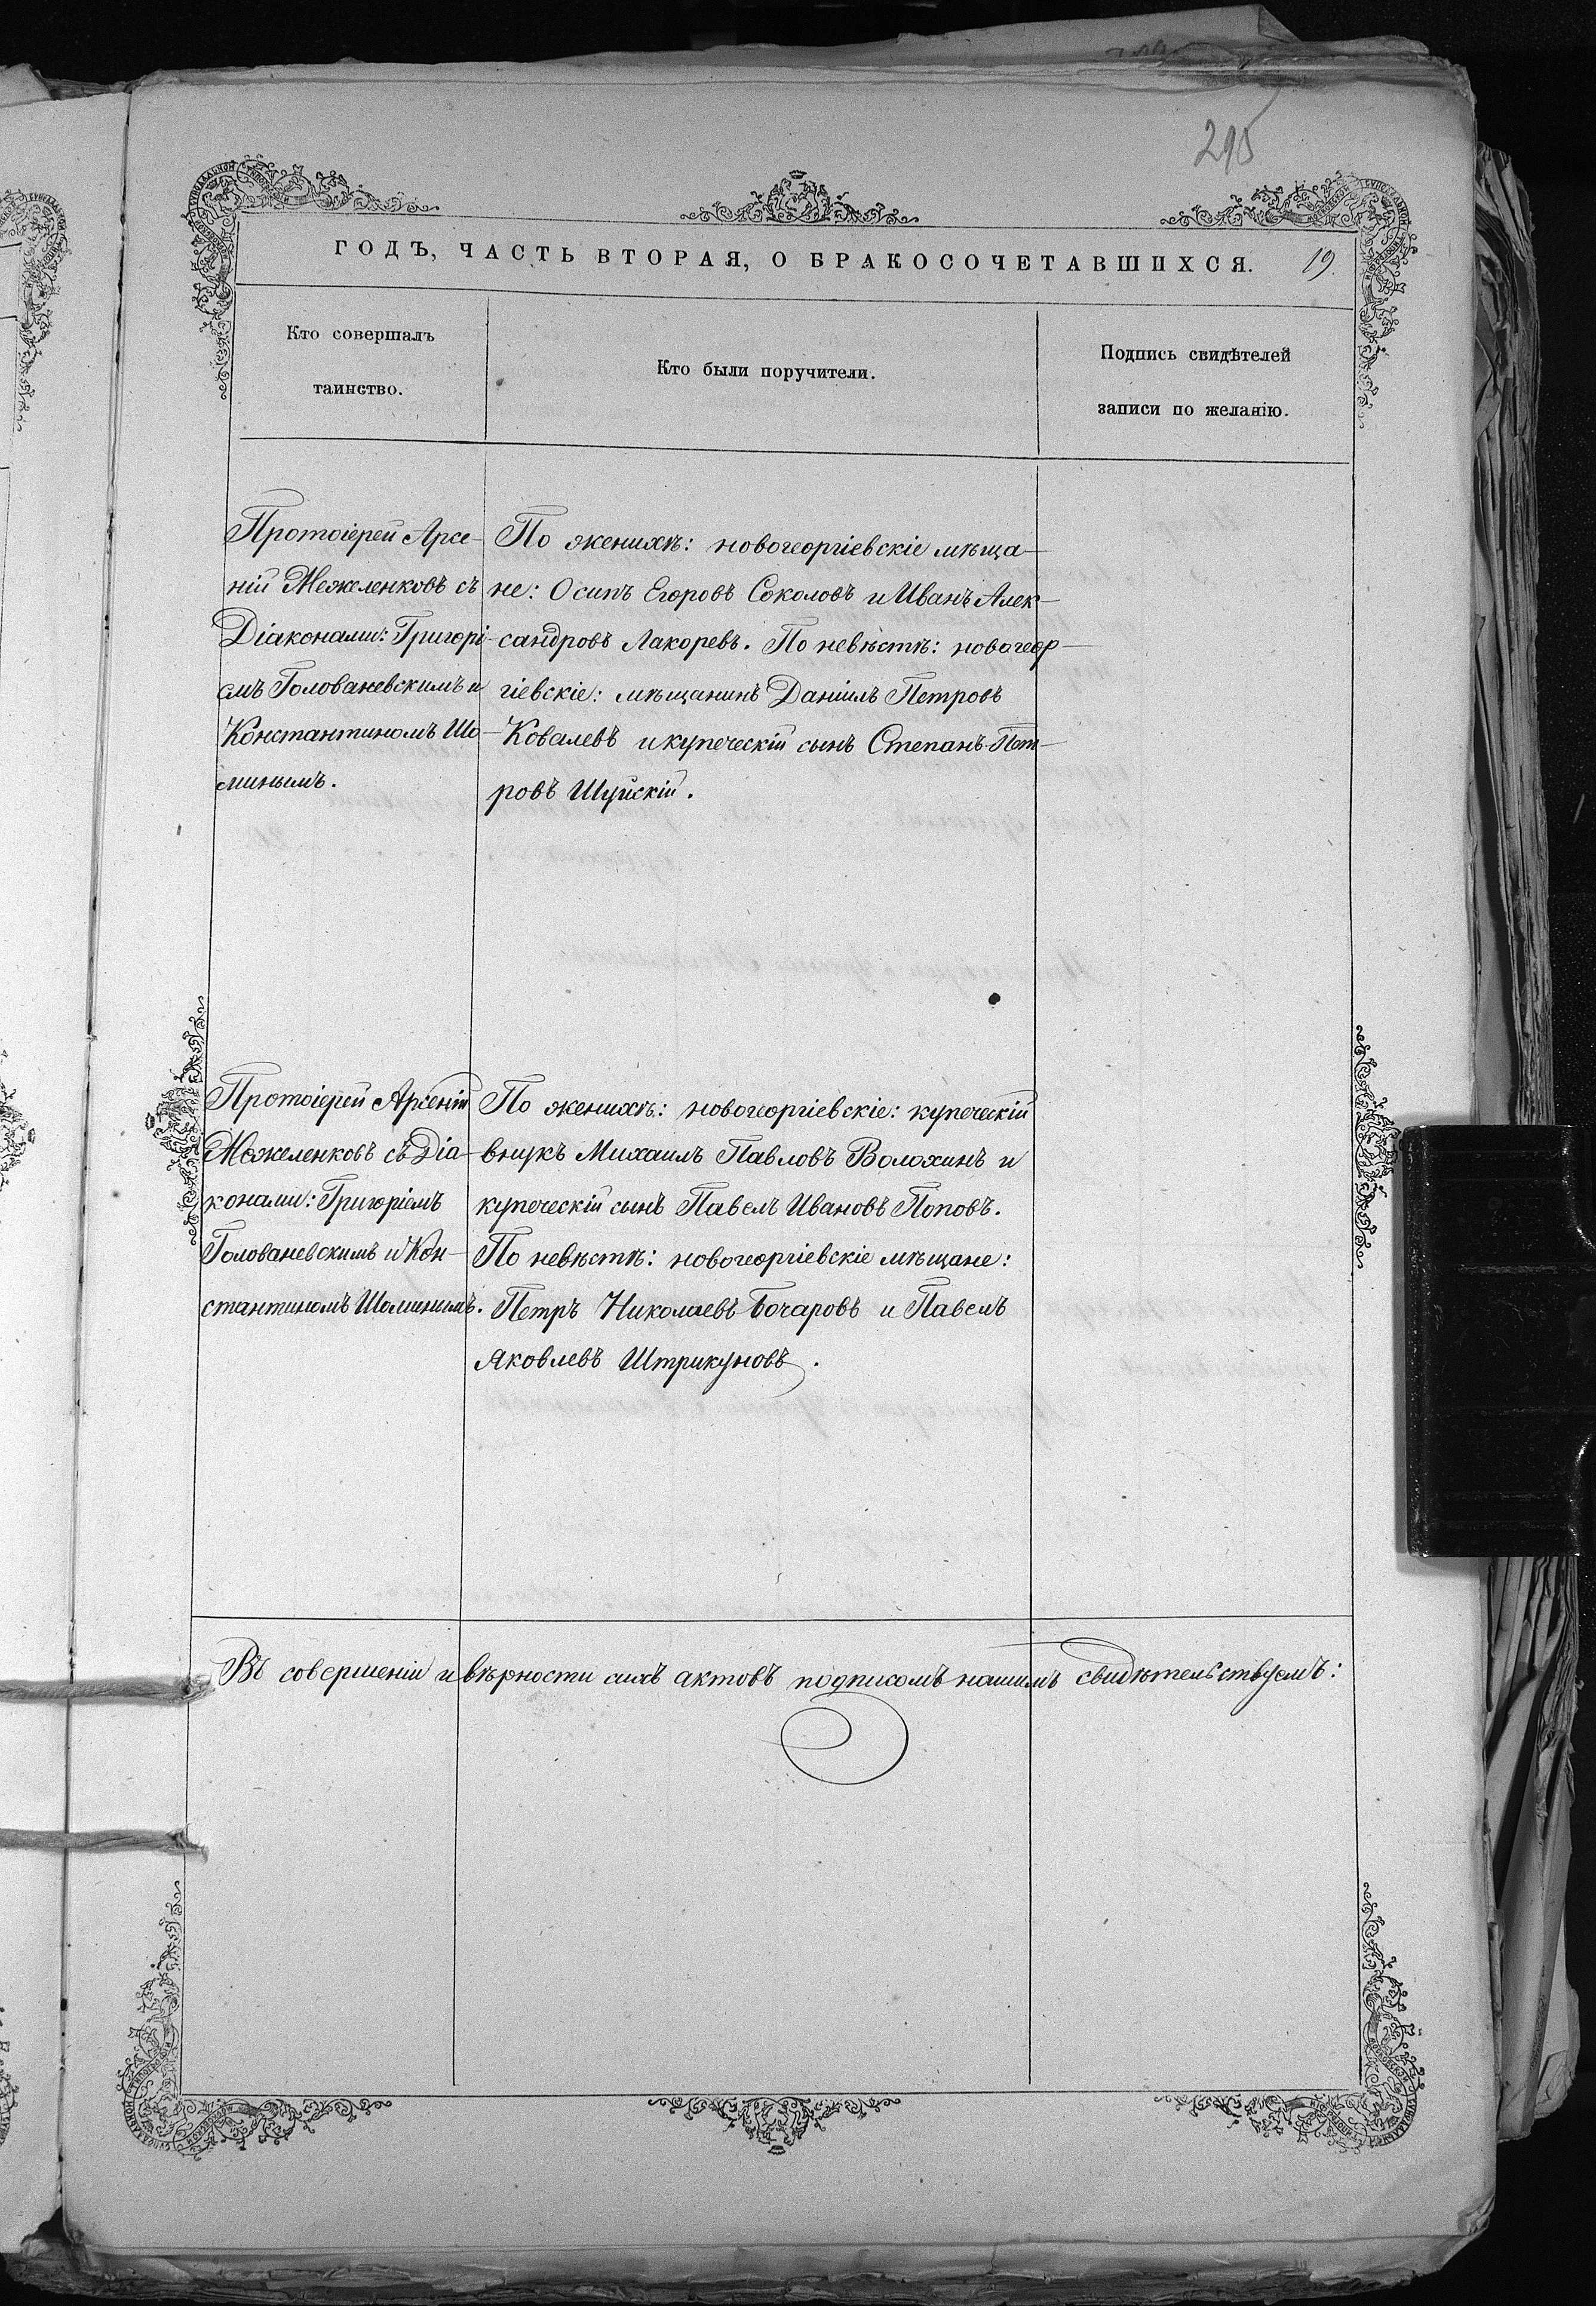 295
ГОДЪ, ЧАСТЬ ВТОРАЯ, О БРАКОСОЧЕТАВШИХСЯ. 19.
Кто совершалъ
таинство.
Кто были поручители.
Подпись свидѣтелей
записи по желанію.
Протоіерей Арсе-
ній Межеленковъ съ
Діаконами: Григорі-
емъГолованевскимъ и
Константиномъ Шо-
минымъ.
По женихѣ: новогеоргіевскіе мѣща-
не: Осипъ Егоровъ Соколовъ и Иванъ Алек-
сандровъ Лакоревъ. По невѣстѣ: новогеор-
гіевскіе: мѣщанинъ Даніилъ Петровъ
Ковалевъ и купеческій сынъ Степанъ Пет-
ровъ Шуйскій.
Протоіерей Арсеній
Межеленковъ съ Діа-
конами: Григоріемъ
Голованевскимъ и Кон-
стантиномъ Шоминымъ.
По женихѣ: новогеоргіевскіе: купеческій
внукъ Михаилъ Павловъ Волохинъ и
купеческій сынъ Павелъ Ивановъ Поповъ.
По невѣстѣ: новогеоргіевскіе мѣщане:
Петръ Николаевъ Бочаровъ и Павелъ
Яковлевъ Штрикуновъ.
Въ совершеніи и вѣрности сихъ актовъ подписомъ нашимъ свидѣтельствуемъ: